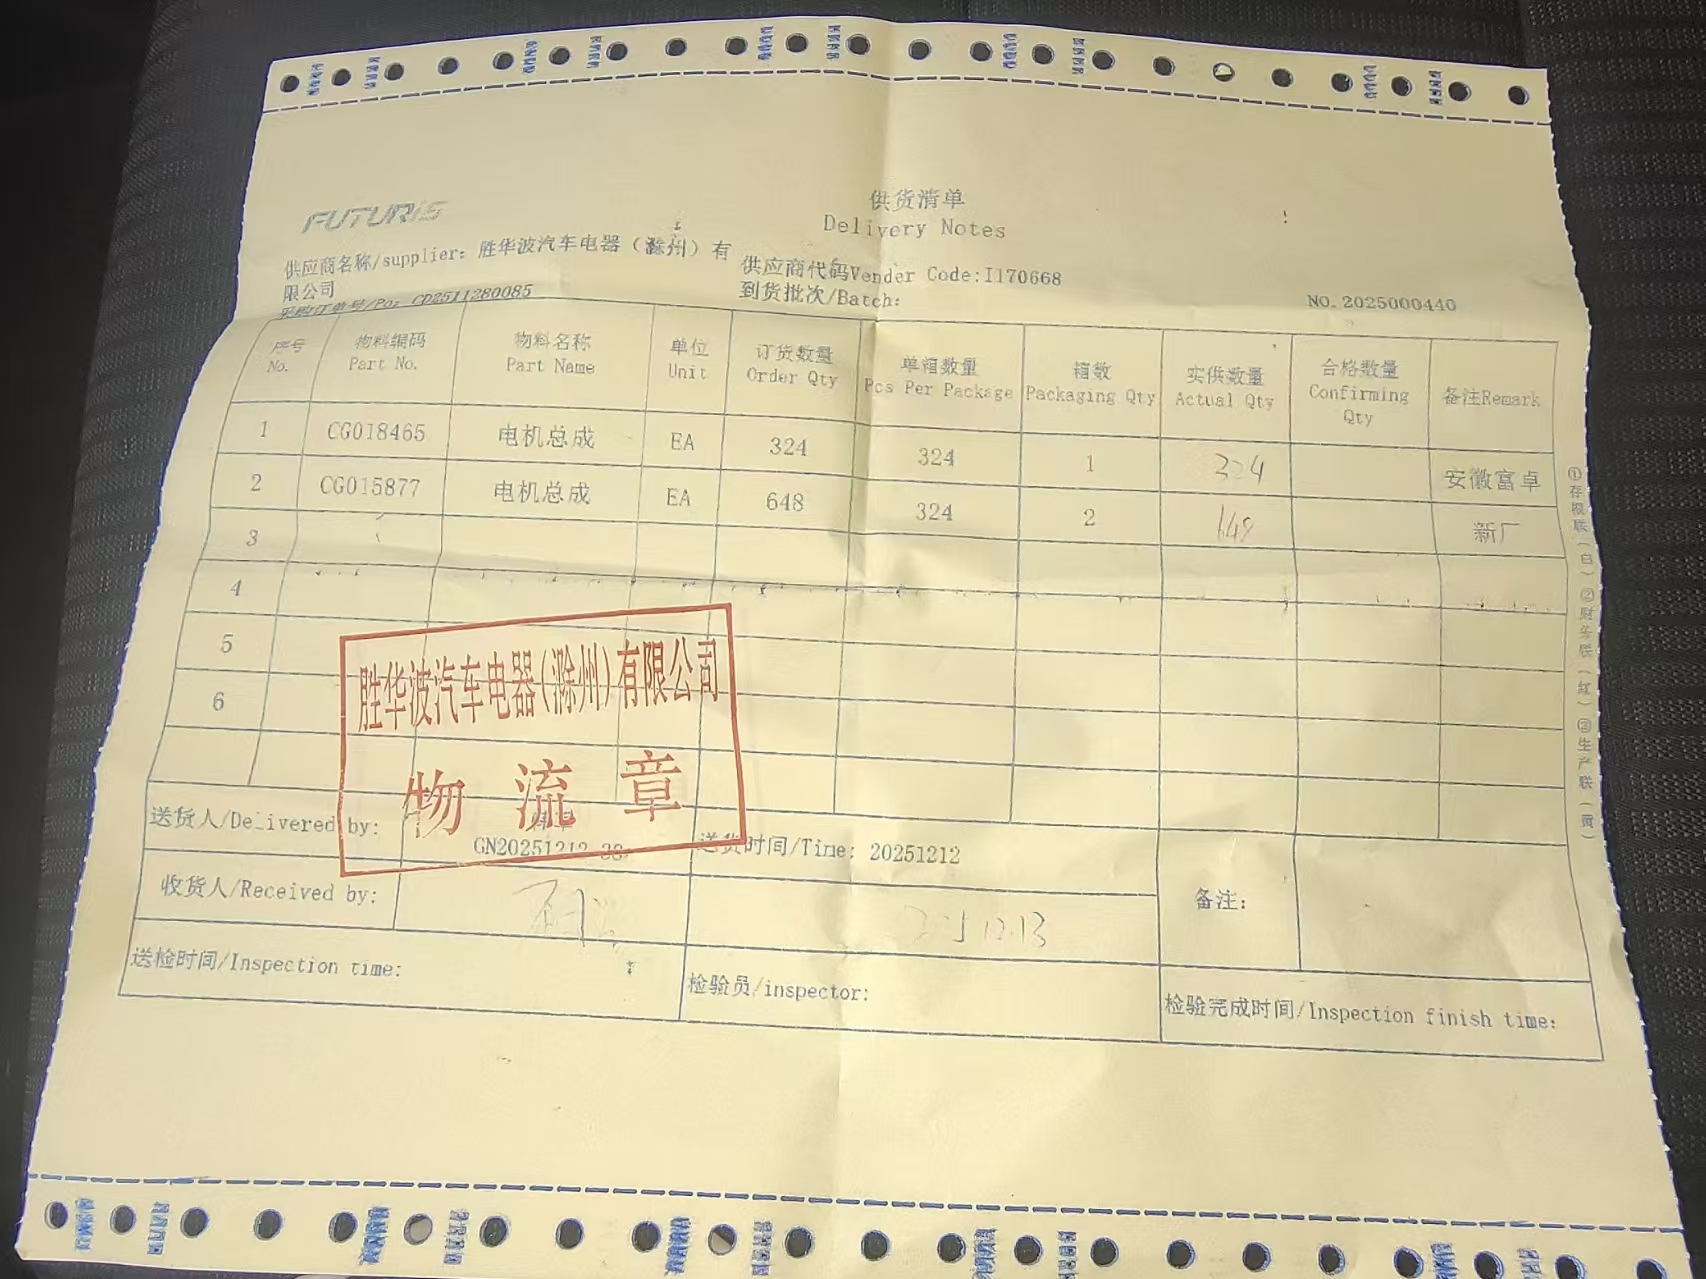 FUTURIS
供货清单
Delivery Notes
供应商名称/supplier: 胜华波汽车电器（滁州）有
限公司
供应商代码Vender Code:I170668
采购订单号/Po: CD2511280085
到货批次/Batch:
NO. 2025000440
序号 No. 物料编码 Part No. 物料名称 Part Name 单位 Unit 订货数量 Order Qty 单箱数量 Pcs Per Package 箱数 Packaging Qty 实供数量 Actual Qty 合格数量 Confirming Qty 备注Remark
1 CG018465 电机总成 EA 324 324 1 324 安徽富卓
2 CG015877 电机总成 EA 648 324 2 648 新厂
3
4
5
6
胜华波汽车电器(滁州)有限公司
物流章
送货人/Delivered by:
GN20251212
送货时间/Time: 20251212
收货人/Received by:
12.13
备注:
送检时间/Inspection time:
检验员/inspector:
检验完成时间/Inspection finish time:
①存根联(白)②财务联(红)③生产联(黄)